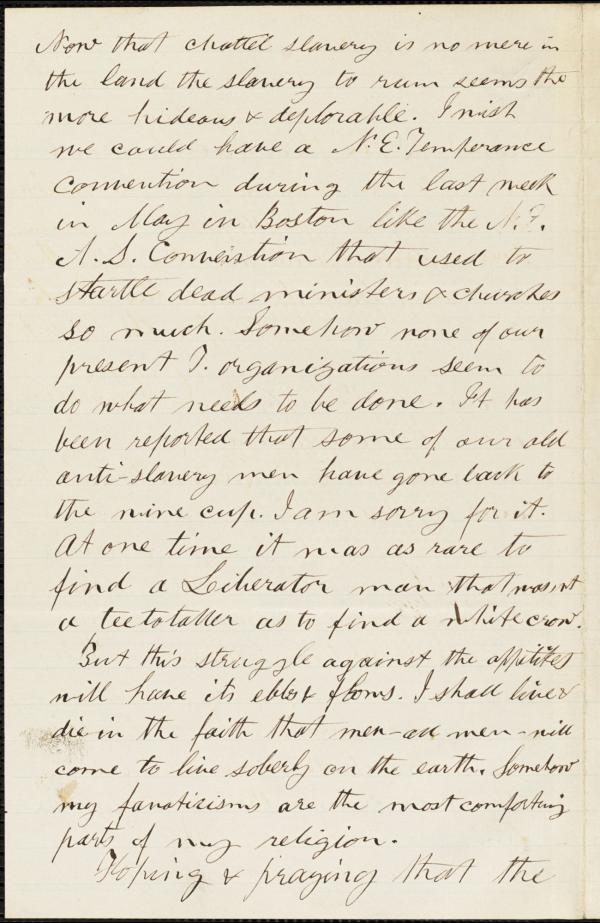 Now that chattel slavery is no more in
the land the slavery to rum seems the
more hideous & deplorable. I wish
we could have a N. E. Temperance
Convention during the last week
in May in Boston like the N. E.
A. S. Convention that used to
startle dead ministers & churches
so much. Somehow none of our
present T. organizations seem to
do what needs to be done. It has
been reported that some of our old
anti-slavery men have gone back to
the wine cup. I am sorry for it.
At one time it was as rare to
find a Liberator man that was not
a teetotaller as to find a white crow.
But this struggle against the appetites
will have its ebbs & flows. I shall live &
die in the faith that men - all men - will
come to live soberly on the earth. Somehow
my fanaticisms are the most comforting
parts of my religion.
Hoping & praying that the